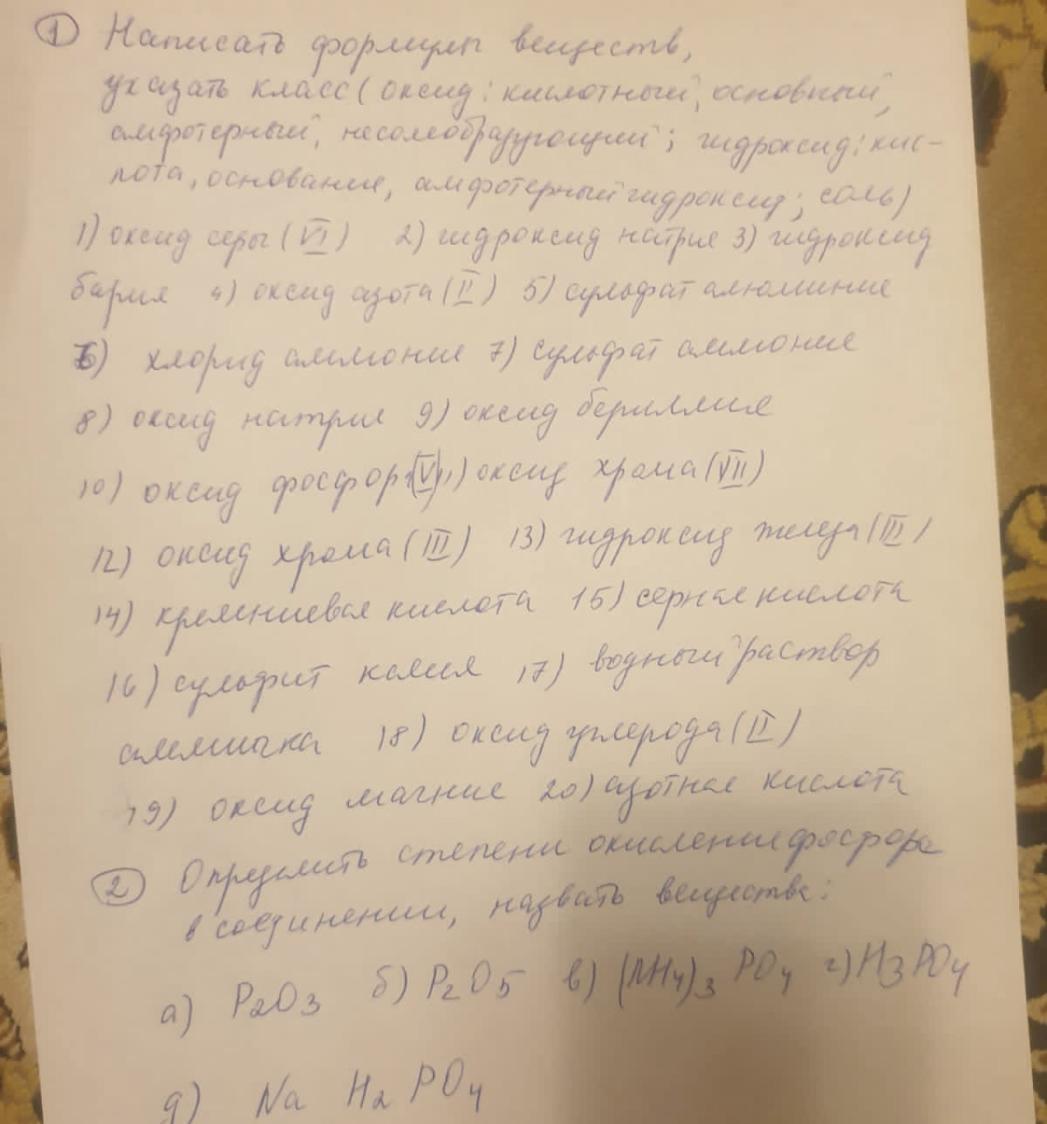 ① Написать формулы веществ,
указать класс (оксид: кислотный, основный,
амфотерный, несолеобразующий; гидроксид: кис-
лота, основание, амфотерный гидроксид; соль)
1) оксид серы (VI) 2) гидроксид натрия 3) гидроксид
бария 4) оксид азота (II) 5) сульфат алюминия
6) хлорид аммония 7) сульфат аммония
8) оксид натрия 9) оксид бериллия
10) оксид фосфора (V) 11) оксид хрома (VII)
12) оксид хрома (III) 13) гидроксид железа (III)
14) кремниевая кислота 15) серная кислота
16) сульфит калия 17) водный раствор
аммиака 18) оксид углерода (II)
19) оксид магния 20) азотная кислота
② Определить степени окисления фосфора
в соединении, назвать вещества:
а) P2O3 б) P2O5 в) (NH4)3 PO4 г) H3PO4
д) Na H2 PO4